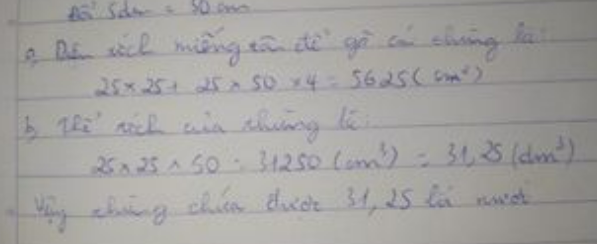 Đổi 5dm = 50 cm
a, Diện tích miếng tôn để gò cái thùng là:
25 × 25 + 25 × 50 × 4 = 5625 (cm²)
b, Thể tích của thùng là:
25 × 25 × 50 = 31250 (cm³) = 31,25 (dm³)
Vậy thùng chứa được 31,25 lít nước